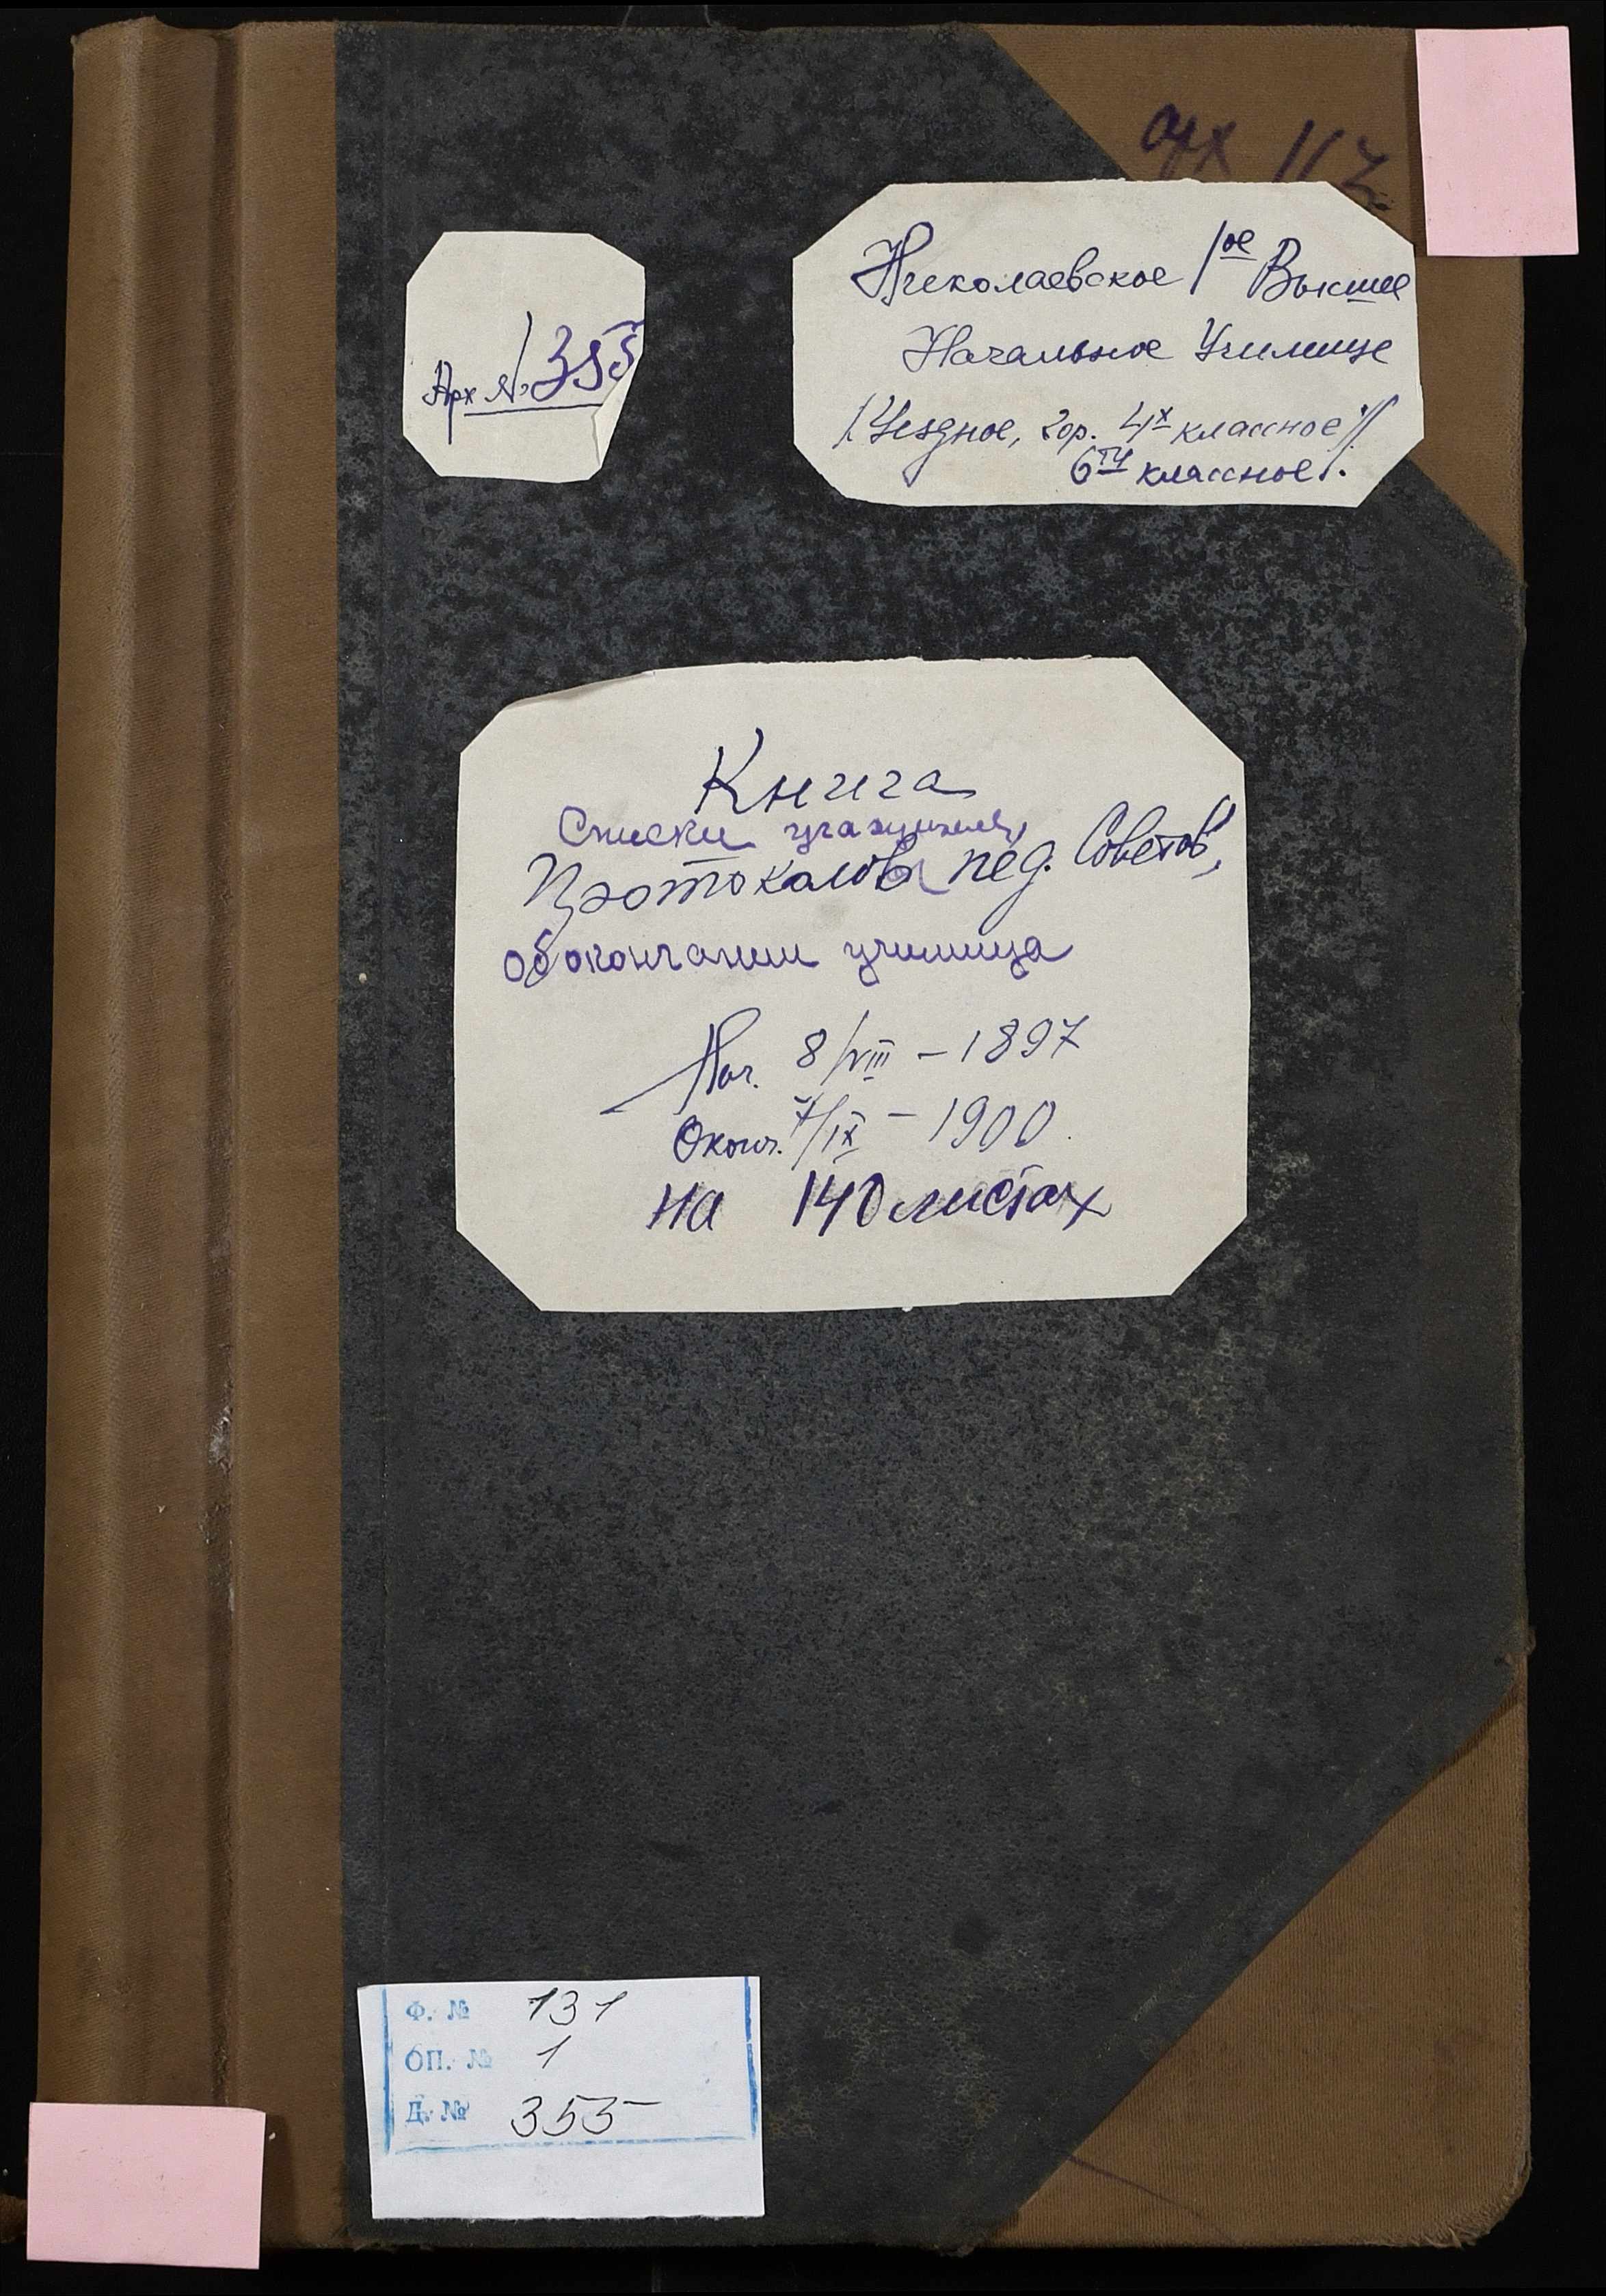 арх 113
Николаевское 1ое Высшее
Начальное Училище
/Уездное, гор. 4х классное//
6ти классное/.
Арх № 355
Книга
Списки учащихся,
Протоколов пед. Советов,
об окончании училища
Нач. 8/VIII – 1897
Оконч. 7/IX – 1900
на 140 листах
Ф. № 131
ОП. № 1
Д. № 355